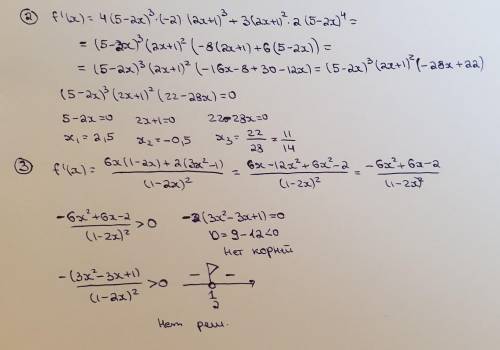 ② f'(x) = 4(5-2x)³·(-2)(2x+1)³ + 3(2x+1)²·2(5-2x)⁴ =
= (5-2x)³(2x+1)²(-8(2x+1)+6(5-2x)) =
= (5-2x)³(2x+1)²(-16x-8+30-12x) = (5-2x)³(2x+1)²(-28x+22)
(5-2x)³(2x+1)²(22-28x)=0
5-2x=0 2x+1=0 22-28x=0
x₁=2,5 x₂=-0,5 x₃=22/28=11/14
③ f'(x)= (6x(1-2x)+2(3x²-1))/(1-2x)² = (6x-12x²+6x²-2)/(1-2x)² = (-6x²+6x-2)/(1-2x)²
(-6x²+6x-2)/(1-2x)² >0 -2(3x²-3x+1)=0
D=9-12<0
Нет корней
-(3x²-3x+1)/(1-2x)² >0 - -
1/2
Нет реш.